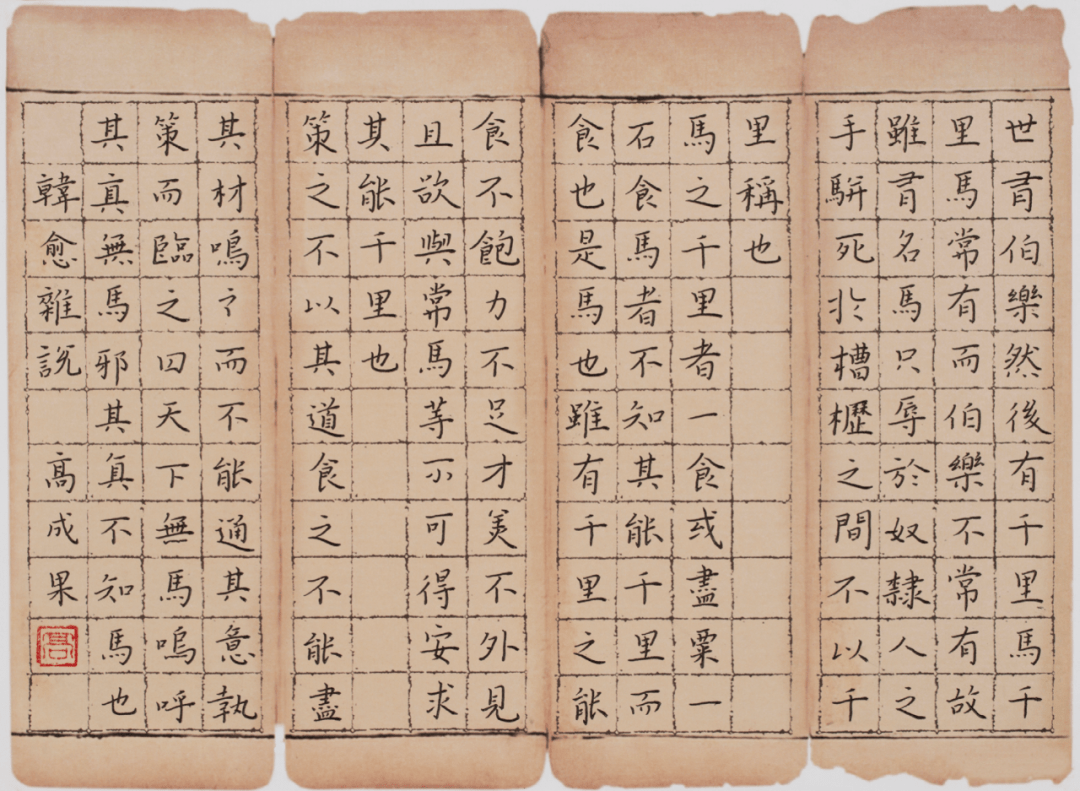 世有伯樂然後有千里馬千
里馬常有而伯樂不常有故
雖有名馬只辱於奴隸人之
手駢死於槽櫪之間不以千
里稱也
馬之千里者一食或盡粟一
石食馬者不知其能千里而
食也是馬也雖有千里之能
食不飽力不足才美不外見
且欲與常馬等不可得安求
其能千里也
策之不以其道食之不能盡
其材鳴之而不能通其意執
策而臨之曰天下無馬嗚呼
其真無馬邪其真不知馬也
韓愈雜說 高成果